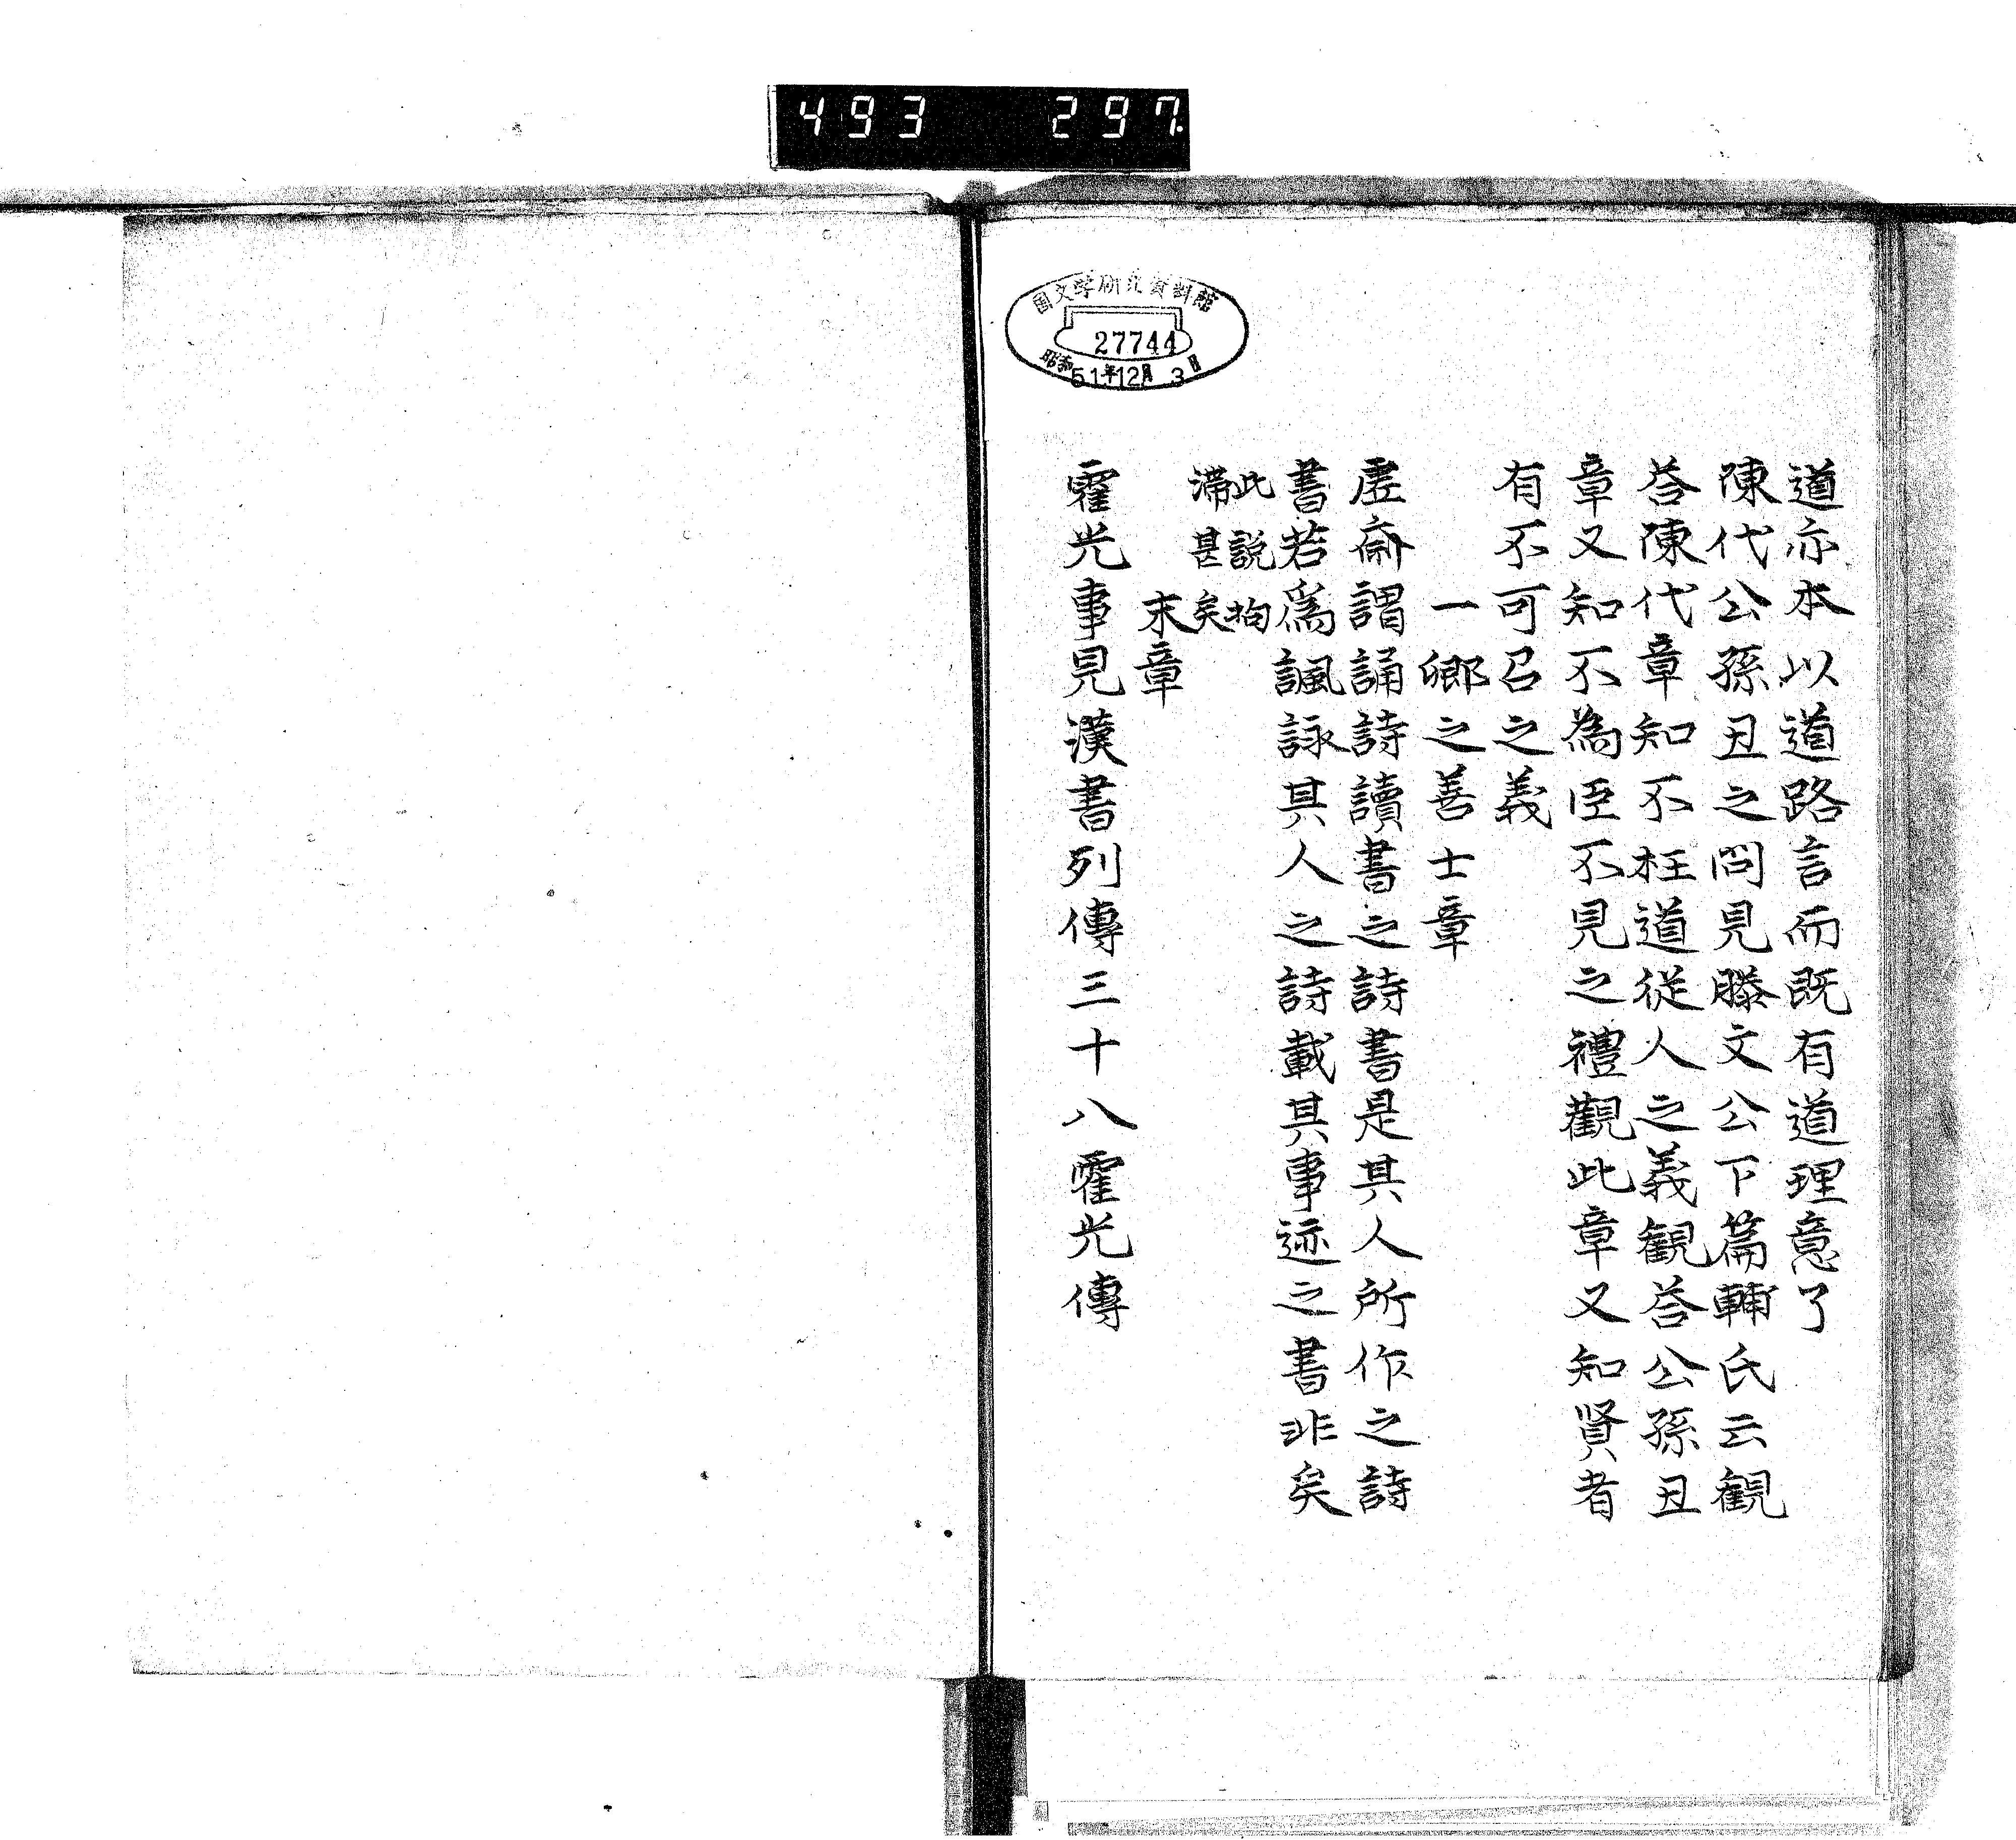 493 297.
国文学研究資料館
27744
昭和51年12月3日
道亦本以道路言而既有道理意了
陳代公孫丑之問見滕文公下篇輔氏云観
荅陳代章知不枉道従人之義観荅公孫丑
章又知不為臣不見之禮觀此章又知賢者
有不可召之義
一鄉之善士章
虚齋謂誦詩讀書之詩書是其人所作之詩
書若爲諷詠其人之詩載其事迹之書非矣
此說拘
滯甚矣
末章
霍光事見漢書列傳三十八霍光傳